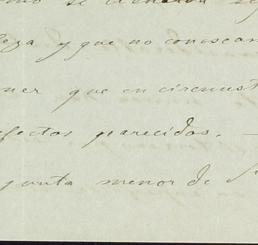 se
y que no conoscan
ner que en circunst
efectos parecidos. —
junta menor de